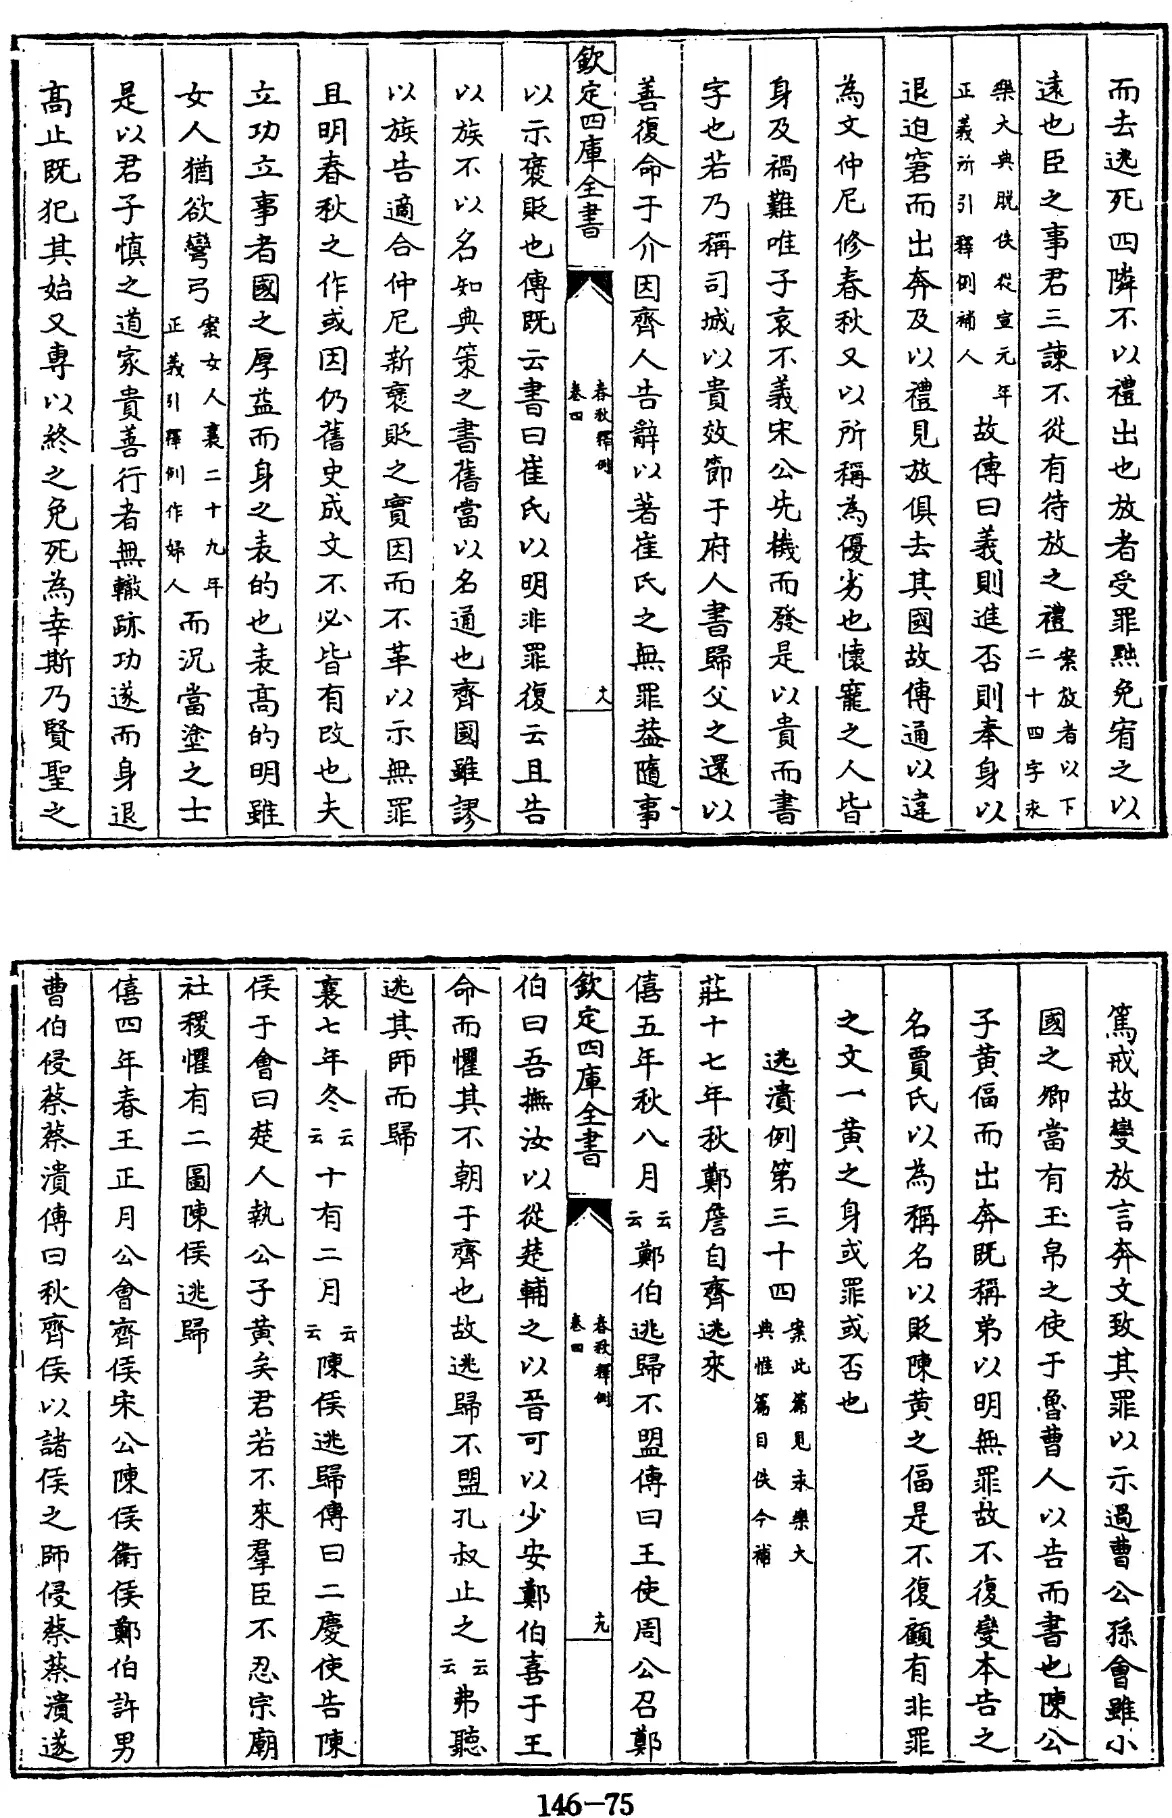 而去逃死四隣不以禮出也放者受罪黜免宥之以
遠也臣之事君三諫不從有待放之禮案放者以下二十四字永
樂大典脱佚從宣元年正義所引釋例補人故傳曰義則進否則奉身以
退迫窘而出奔及以禮見放俱去其國故傳通以違
為文仲尼修春秋又以所稱為優劣也懷寵之人皆
身及禍難唯子哀不義宋公先機而發是以貴而書
字也若乃稱司城以貴效節于府人書歸父之還以
善復命于介因齊人告辭以著崔氏之無罪葢隨事
欽定四庫全書 春秋釋例 卷四 十八
以示褒貶也傳既云書曰崔氏以明非罪復云且告
以族不以名知典策之書舊當以名通也齊國雖謬
以族告適合仲尼新褒貶之實因而不革以示無罪
且明春秋之作或因仍舊史成文不必皆有改也夫
立功立事者國之厚益而身之表的也表高的明雖
女人猶欲彎弓案女人襄二十九年正義引釋例作婦人而況當塗之士
是以君子慎之道家貴善行者無轍跡功遂而身退
高止既犯其始又專以終之免死為幸斯乃賢聖之
篤戒故變放言奔文致其罪以示過曹公孫會雖小
國之卿當有玉帛之使于魯曹人以告而書也陳公
子黄偪而出奔既稱弟以明無罪故不復變本告之
名賈氏以為稱名以貶陳黄之偪是不復顧有非罪
之文一黄之身或罪或否也
逃潰例第三十四案此篇見永樂大典惟篇目佚今補
莊十七年秋鄭詹自齊逃來
僖五年秋八月云云鄭伯逃歸不盟傳曰王使周公召鄭
欽定四庫全書 春秋釋例 卷四 十九
伯曰吾撫汝以從楚輔之以晉可以少安鄭伯喜于王
命而懼其不朝于齊也故逃歸不盟孔叔止之云云弗聽
逃其師而歸
襄七年冬云云十有二月云云陳侯逃歸傳曰二慶使告陳
侯于會曰楚人執公子黄矣君若不來羣臣不忍宗廟
社稷懼有二圖陳侯逃歸
僖四年春王正月公會齊侯宋公陳侯衛侯鄭伯許男
曹伯侵蔡蔡潰傳曰秋齊侯以諸侯之師侵蔡蔡潰遂
146-75